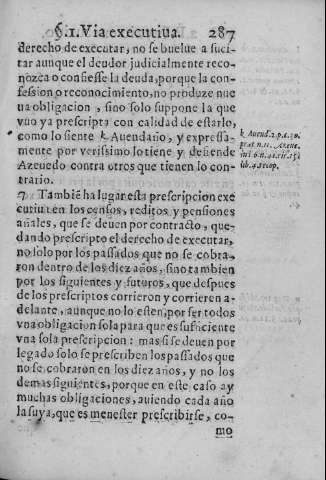 §.1. Via executiua. 287
derecho de executar, no se buelue a suci-
tar aunque el deudor judicialmente reco-
nozca o confiesse la deuda, porque la con-
fession o reconocimiento, no produze nue
ua obligacion, sino solo suppone la que
vuo ya prescripta con calidad de estarlo,
como lo siente k Auendaño, y expressa-
mente por verissimo lo tiene y defiende
Azeuedo contra otros que tienen lo con-
trario.
7. Tambiẽ ha lugar esta prescripcion exe
cutiua en los censos, reditos y pensiones
añales, que se deuen por contracto, que-
dando prescripto el derecho de executar,
no solo por los passados que no se cobra-
ron dentro de los diez años, sino tambien
por los siguientes y futuros, que despues
de los prescriptos corrieron y corrieren a-
delante, aunque no lo esten, por ser todos
vna obligacion sola para que es sufficiente
vna sola prescripcion: mas si se deuen por
legado solo se prescriben los passados que
no se cobraron en los diez años, y no los
demas siguientes, porque en este caso ay
muchas obligaciones, auiendo cada año
la suya, que es menester prescribirse, co-
mo
k Auend. 2. p. c. 30.
lib. 4. recop.